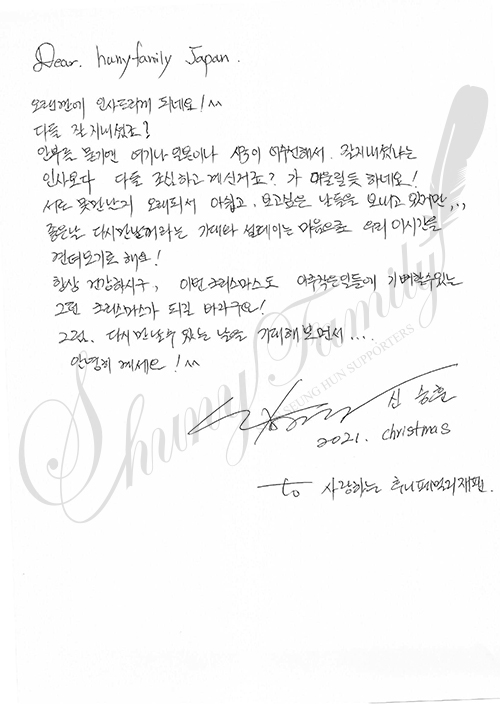 Dear. huny family Japan.
오랜만에 인사드리게 되네요! ^^
다들 잘 지내셨죠?
안부를 묻기엔 여기나 일본이나 시국이 어수선해서. 잘지내셨냐는
인사보다 다들 조심하고 계신거죠? 가 어울릴듯 하네요!
서로 못만난지 오래되서 아쉽고. 보고싶은 날들을 보내고 있지만...
좋은날 다시만날꺼라는 기대와 설레이는 마음으로 우리 이시간을
견뎌보기로 해요!
항상 건강하시구, 이번 크리스마스도 아주작은일들에 기뻐할수있는
그런 크리스마스가 되길 바라구요!
그럼. 다시만날수 있는 날을 기대해보면서...
안녕히 계세요! ^^
신승훈
2021. christmas
to 사랑하는 후니패밀리재팬.
Shuny Family
SEUNG HUN SUPPORTERS